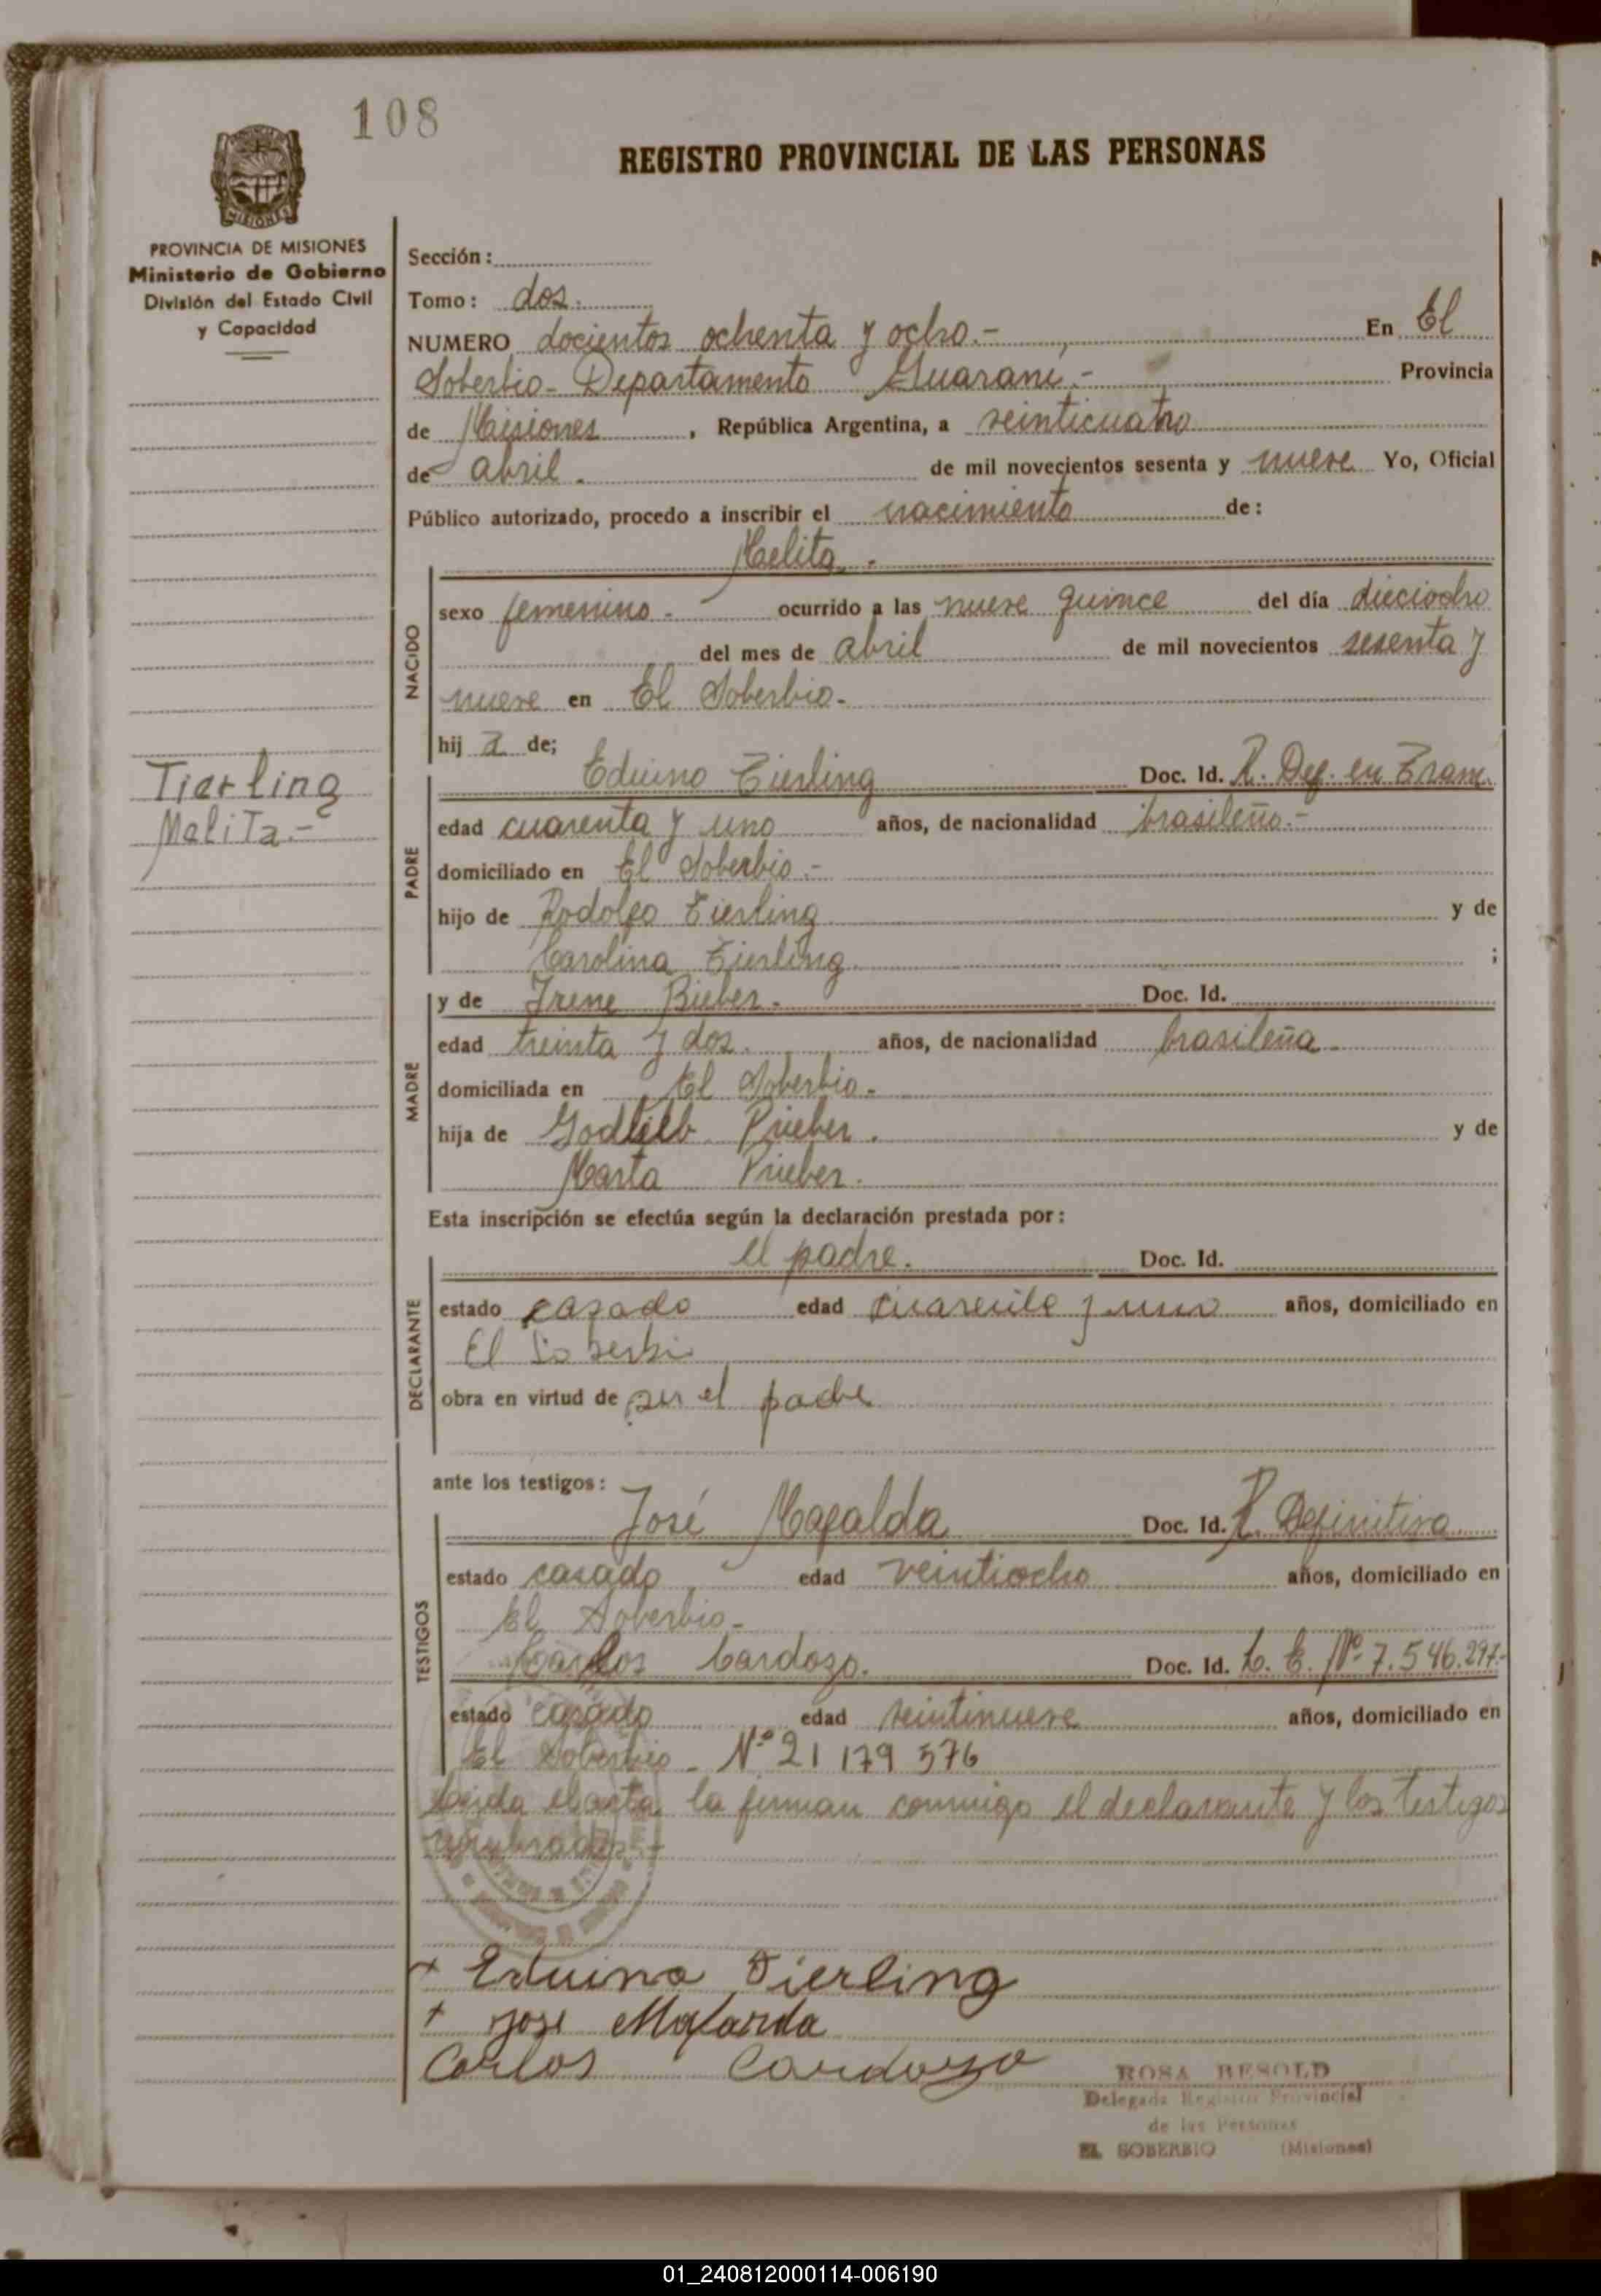 108
REGISTRO PROVINCIAL DE LAS PERSONAS
MISIONES
PROVINCIA DE MISIONES
Ministerio de Gobierno
División del Estado Civil
y Capacidad
Sección:
Tomo: dos.
NUMERO docientos ochenta y ocho.- En El
Soberbio- Departamento Guarani.- Provincia
de Misiones, República Argentina, a veinticuatro
de abril. de mil novecientos sesenta y nueve Yo, Oficial
Público autorizado, procedo a inscribir el nacimiento de:
Melita.-
NACIDO
sexo femenino.- ocurrido a las nueve quince del día dieciocho
del mes de abril de mil novecientos sesenta y
nueve en El Soberbio-
hij a de;
Tierling
Melita.-
PADRE
Eduino Tierling Doc. Id. R. Def. en Tram.
edad cuarenta y uno años, de nacionalidad brasileño.-
domiciliado en El Soberbio.-
hijo de Rodolfo Tierling y de
Carolina Tierling ;
MADRE
y de Irene Bieber.- Doc. Id.
edad treinta y dos. años, de nacionalidad brasileña.
domiciliada en El Soberbio.-
hija de Godlieb Prieber. y de
Marta Prieber.
Esta inscripción se efectúa según la declaración prestada por:
DECLARANTE
el padre. Doc. Id.
estado casado edad cuarenta y uno años, domiciliado en
El Soberbio
obra en virtud de ser el padre
ante los testigos:
TESTIGOS
José Mafalda Doc. Id. R. Definitiva
estado casado edad veintiocho años, domiciliado en
El Soberbio-
Carlos Cardozo. Doc. Id. L. E. Nº 7.546.297.-
estado casado edad veintinueve años, domiciliado en
El Soberbio - Nº 21 179 576
Leida el acta, la firman conmigo el declarante y los testigos
nombrados.-
+ Eduino Tierling
+ Jose Mafarda
Carlos Cardozo
ROSA BESOLD
Delegada Registro Provincial
de las Personas
EL SOBERBIO (Misiones)
01_240812000114-006190